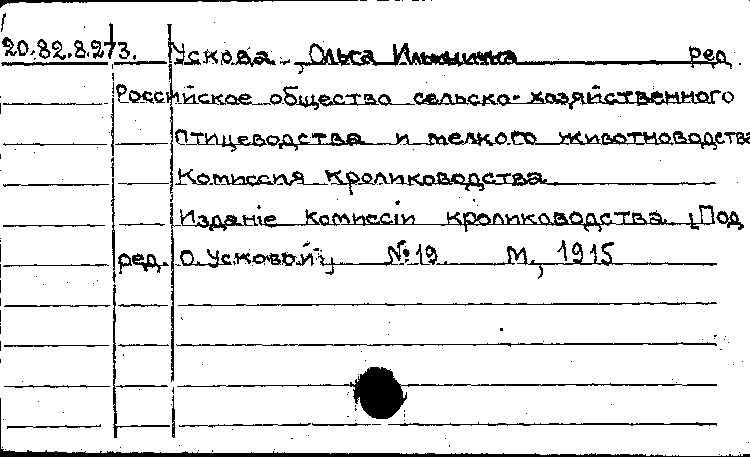 20.82.8.273. Ускова, Ольга Ильинична ред.
Российское общество сельско-хозяйственного
птицеводства и мелкого животноводства
Комиссия кролиководства
Изданіе Комиссіи кролиководства. [Под
ред. О. Усковой], №19. М., 1915